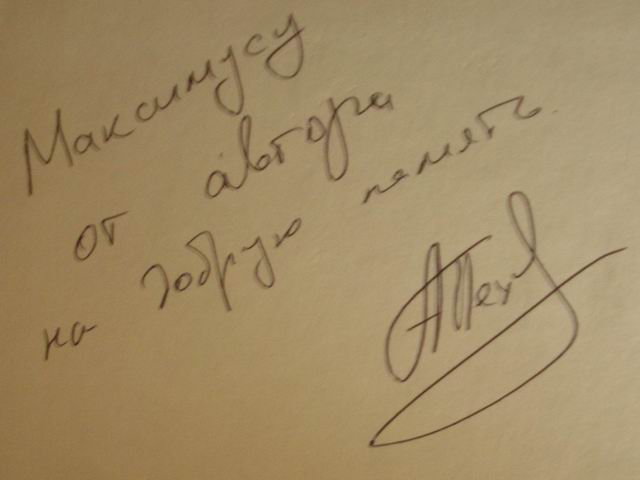 Максимусу
от автора
на добрую память